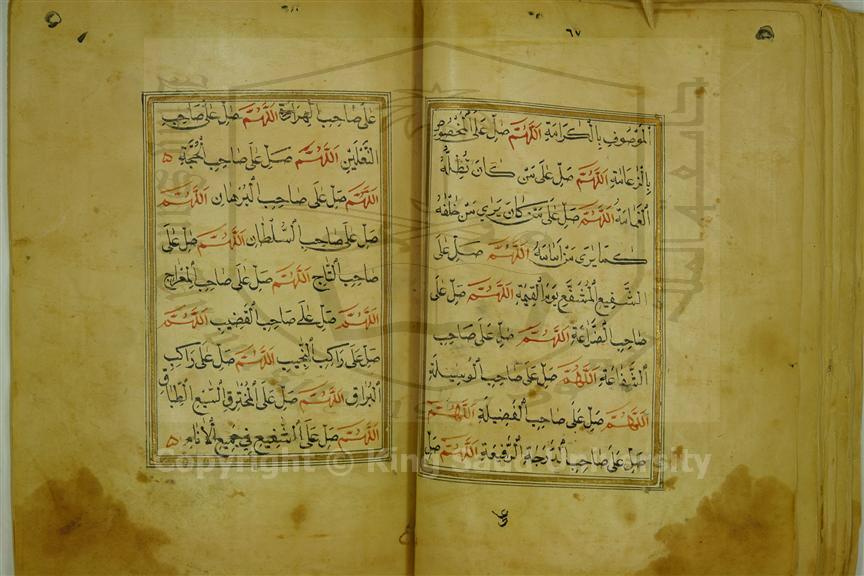 ٦٧
الموصوف بالكرامة اللهم صل على المخصوص
بالزعامة اللهم صل على من كان تظله
الغمامة اللهم صل على من كان يرى من خلفه
كما يرى من أمامه اللهم صل على
الشفيع المشفع يوم القيمة اللهم صل على
صاحب الضراعة اللهم صل على صاحب
الشفاعة اللهم صل على صاحب الوسيلة
اللهم صل على صاحب الفضيلة اللهم
صل على صاحب الدرجة الرفيعة اللهم صل
على صاحب الهراوة اللهم صل على صاحب
النعلين اللهم صل على صاحب الحجة
اللهم صل على صاحب البرهان اللهم
صل على صاحب السلطان اللهم صل على
صاحب التاج اللهم صل على صاحب المعراج
اللهم صل على صاحب القضيب اللهم
صل على راكب النجيب اللهم صل على راكب
البراق اللهم صل على المخترق السبع الطباق
اللهم صل على الشفيع في جميع الأنام
Copyright © King Saud University